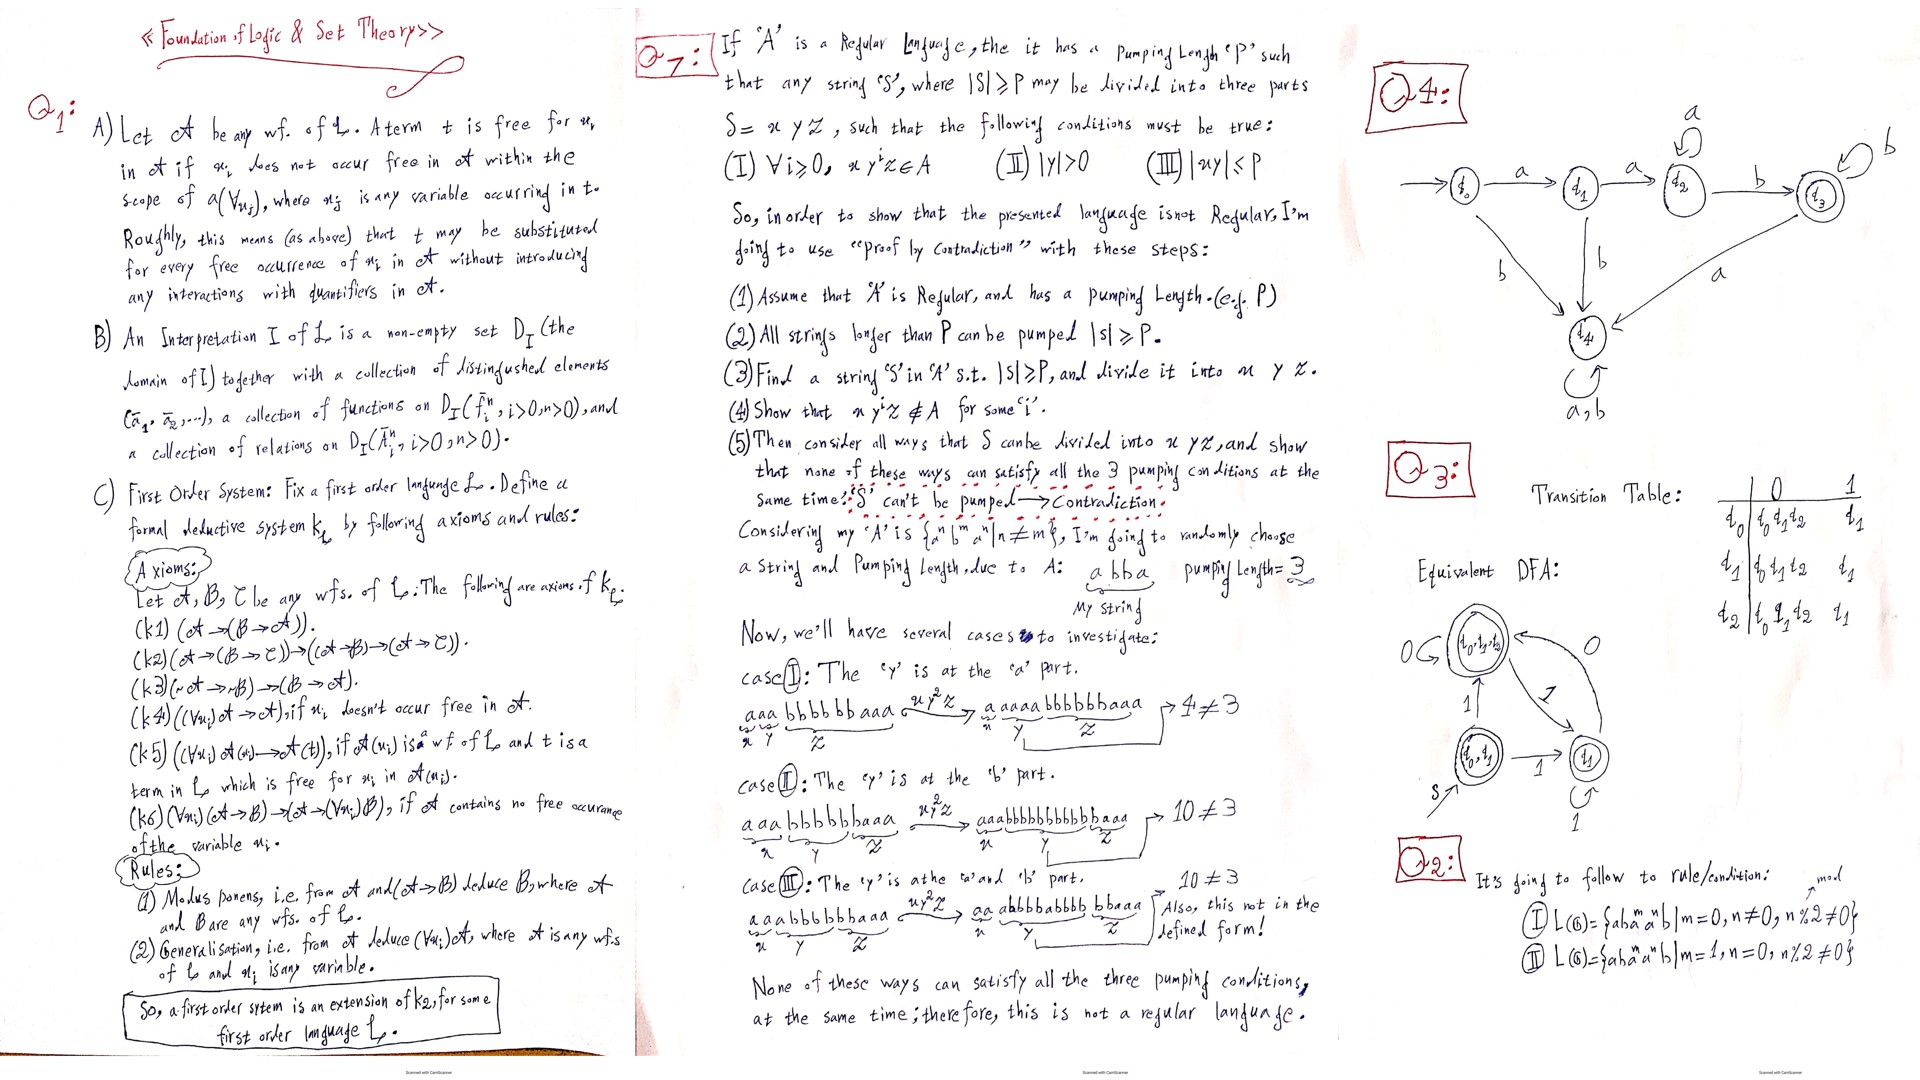 ≪ Foundation of Logic & Set Theory ≫
Q1:
A) Let 𝒜 be any wf. of L. A term t is free for xi
in 𝒜 if xi does not occur free in 𝒜 within the
scope of a (∀xj), where xj is any variable occurring in t.
Roughly, this means (as above) that t may be substituted
for every free occurrence of xi in 𝒜 without introducing
any interactions with quantifiers in 𝒜.
B) An Interpretation I of L is a non-empty set D_I (the
domain of I) together with a collection of distingushed elements
(ā1, ā2, ...), a collection of functions on D_I (f̄iⁿ, i>0, n>0), and
a collection of relations on D_I (Āiⁿ, i>0, n>0).
C) First Order System: Fix a first order language L. Define a
formal deductive system K_L by following axioms and rules:
Axioms:
Let 𝒜, ℬ, 𝒞 be any wfs. of L. The following are axioms of K_L:
(k1) (𝒜→(ℬ→𝒜)).
(k2) (𝒜→(ℬ→𝒞))→((𝒜→ℬ)→(𝒜→𝒞)).
(k3) (~𝒜→~ℬ)→(ℬ→𝒜).
(k4) ((∀xi)𝒜→𝒜), if xi doesn't occur free in 𝒜.
(k5) ((∀xi)𝒜(xi)→𝒜(t)), if 𝒜(xi) is a wf. of L and t is a
term in L which is free for xi in 𝒜(xi).
(k6) (∀xi)(𝒜→ℬ)→(𝒜→(∀xi)ℬ), if 𝒜 contains no free occurance
of the variable xi.
Rules:
(1) Modus ponens, i.e. from 𝒜 and (𝒜→ℬ) deduce ℬ, where 𝒜
and ℬ are any wfs. of L.
(2) Generalisation, i.e. from 𝒜 deduce (∀xi)𝒜, where 𝒜 is any wfs
of L and xi is any variable.
So, a first order sytem is an extension of K_L, for some
first order language L.
Q7:
If 'A' is a Regular Language, the it has a Pumping Length 'P' such
that any string 'S', where |S|≥P may be divided into three parts
S = x y z, such that the following conditions must be true:
(I) ∀i≥0, x yⁱ z ∈ A (II) |y|>0 (III) |xy| ≤ P
So, in order to show that the presented language is not Regular, I'm
going to use "proof by Contradiction" with these steps:
(1) Assume that 'A' is Regular, and has a Pumping Length. (e.g. P)
(2) All strings longer than P can be pumped |S| ≥ P.
(3) Find a string 'S' in 'A' s.t. |S| ≥ P, and divide it into x y z.
(4) Show that x yⁱ z ∉ A for some 'i'.
(5) Then consider all ways that S can be divided into x y z, and show
that none of these ways can satisfy all the 3 pumping conditions at the
same time: 'S' can't be pumped → Contradiction.
Considering my 'A' is {aⁿ bᵐ aⁿ | n ≠ m}, I'm going to randomly choose
a String and Pumping Length, due to A: abba pumping Length = 3
My string
Now, we'll have several cases to investigate:
case I: The 'y' is at the 'a' part.
aaa bbbbbb aaa xy²z → a aaaa bbbbbbaaa → 4 ≠ 3
x y z x y z
case II: The 'y' is at the 'b' part.
aaabbbbbbbaaa xy²z → aaabbbbbbbbbbbaaa → 10 ≠ 3
x y z y z
case III: The 'y' is athe 'a' and 'b' part. 10 ≠ 3
aaabbbbbbaaa xy²z → aa abbbbabbbb bbaaa Also, this not in the
x y z x y z defined form!
None of these ways can satisfy all the three pumping conditions,
at the same time; therefore, this is not a regular language.
Q4:
a
b
q0 a q1 a q2 b q3
b b a
q4
a,b
Q3:
Transition Table: 0 1
q0 q0 q1 q2 q1
q1 q0 q1 q2 q1
q2 q0 q1 q2 q1
Equivalent DFA:
0 q0,q1,q2 0
1 1
q0,q1 1 q1
S
1
Q2:
It's going to follow to rule/condition: mod
(I) L(G)={abaᵐaⁿb | m=0, n≠0, n%2≠0}
(II) L(G)={abaᵐaⁿb | m=1, n=0, n%2≠0}
Scanned with CamScanner
Scanned with CamScanner
Scanned with CamScanner